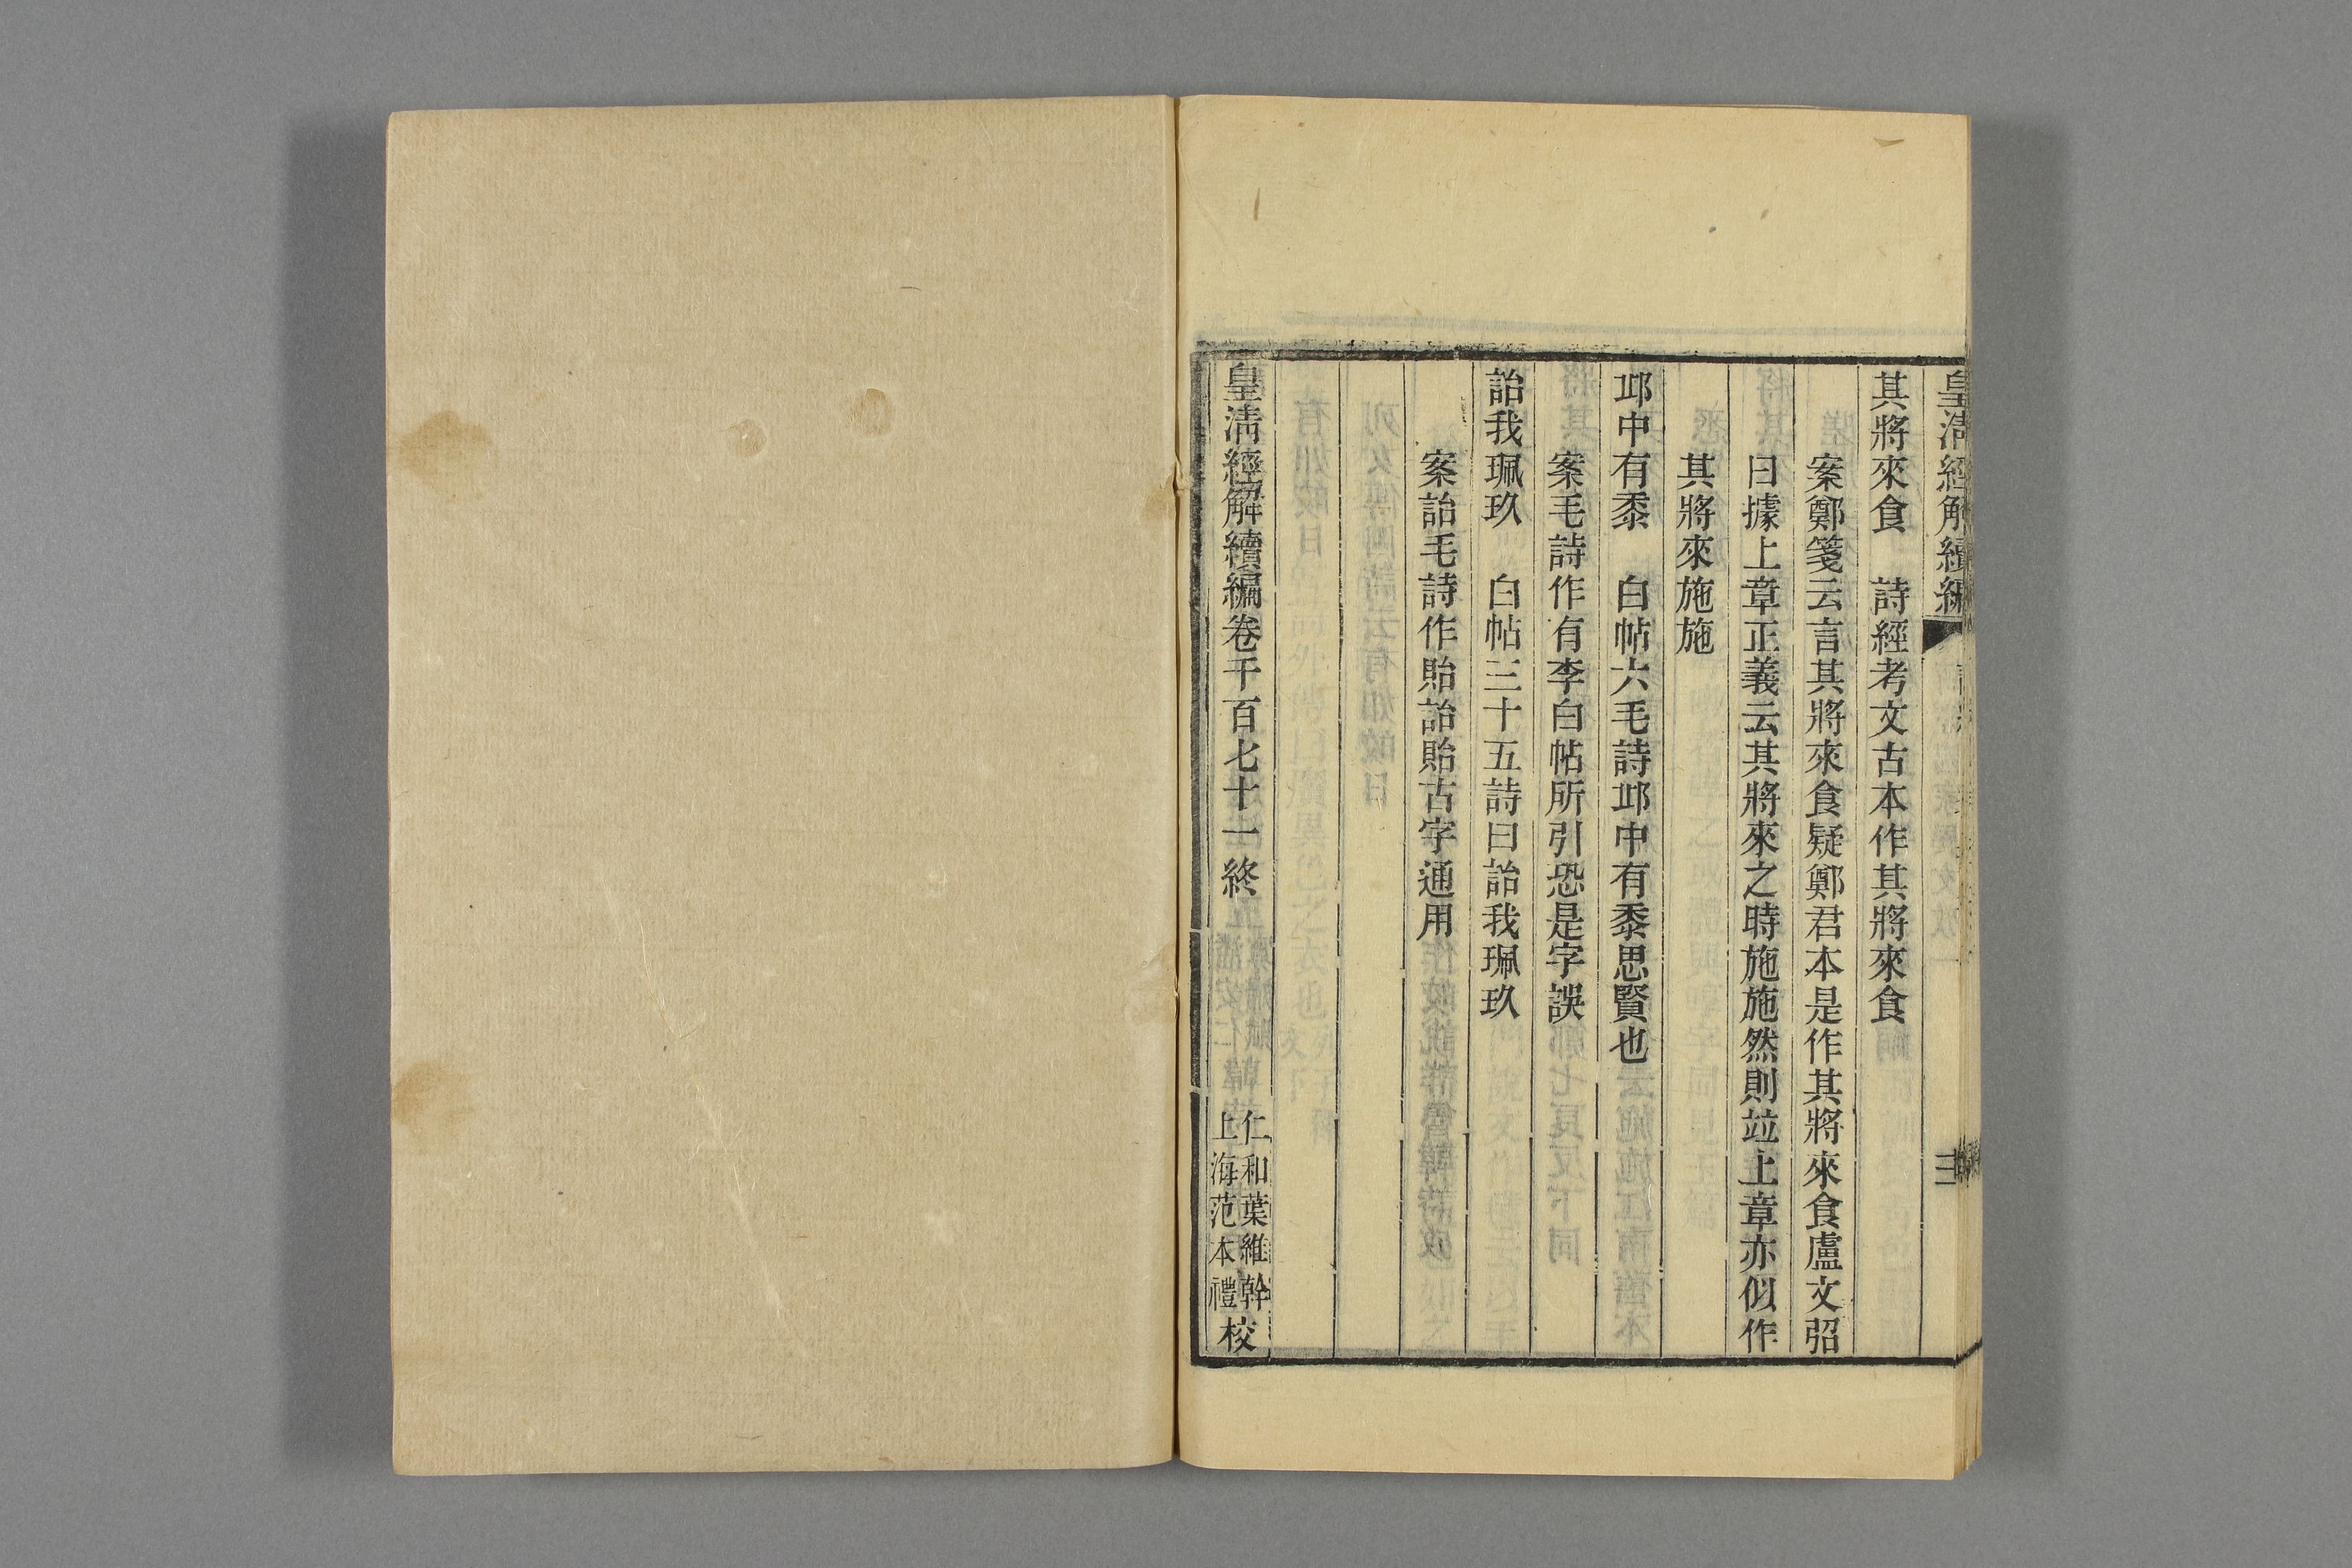 皇清經解續編
其將來食　詩經考文古本作其將來食
案鄭箋云言其將來食疑鄭君本是作其將來食盧文弨
曰據上章正義云其將來之時施施然則竝上章亦似作
其將來施施
邱中有黍　白帖六毛詩邱中有黍思賢也
案毛詩作有李白帖所引恐是字誤
詒我珮玖　白帖三十五詩曰詒我珮玖
案詒毛詩作貽詒貽古字通用
皇清經解續編卷千百七十一終
仁和葉維幹
上海范本禮
校